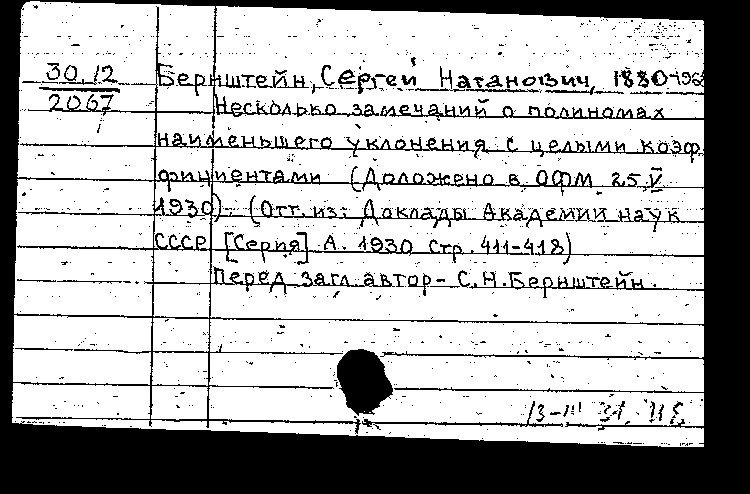 30.12 Бернштейн, Сергей Натанович, 1880-196
2067 Несколько замечаний о полиномах
наименьшего уклонения с целыми коэф
фициентами (Доложено в ОФМ 25 V
1930) - (Отт. из: Доклады Академии наук
СССР [Серия] А. 1930 стр. 411-418)
Перед загл. автор - С.Н. Бернштейн.
13-III 31.